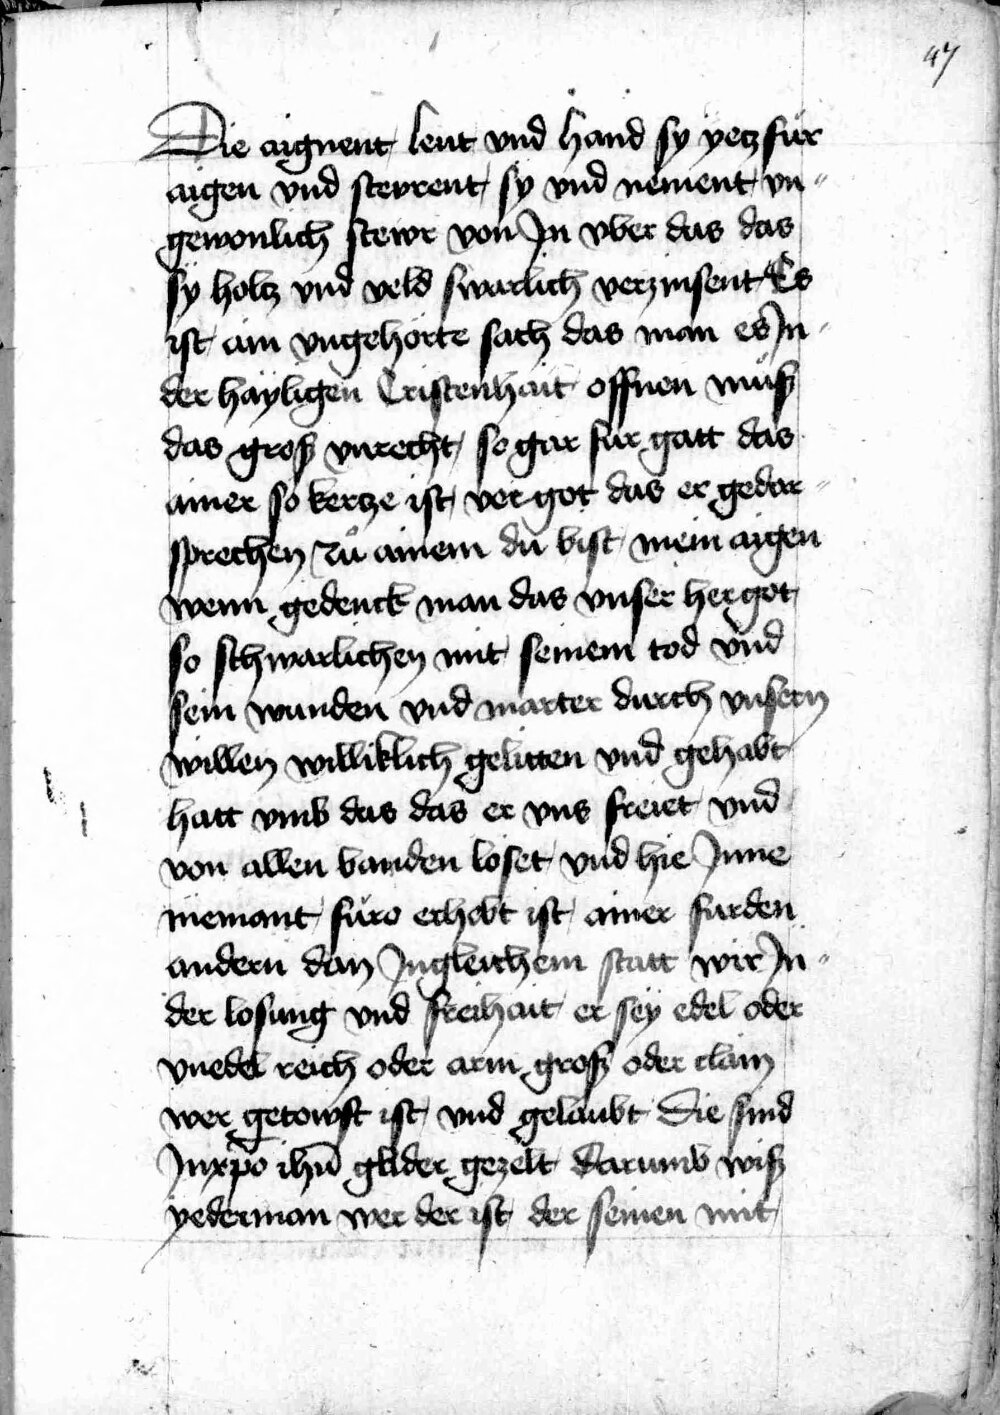 47
Die aignent leut vnd hand sy yetz für
aigen vnd steyrent sy vnd nement vn-
gewonlich stewr von In vber das das
sy holtz vnd veld swarlich verzinsent Es
ist ain vngehorte sach das man es In-
der hayligen Cristenhait offnen müsß
das grosß vnrecht so gar für gatt das
ainer so kertze ist ver got das er gedar-
sprechen zů ainem du bist mein aigen
wenn gedenck man das vnser hergot
so schwarlichen mit seinem tod vnd
sein wunden vnd marter durch vnsern
willen williklich gelitten vnd gehabt
hatt vmb das das er vns freiet vnd
von allen banden loset vnd hie Inne
niemant füro erhebt ist ainer fur den
andern dan In gleichem statt wir In-
der losung vnd freihait er sey edel oder
vnedel reich oder arm grosß oder clain
wer getowft ist vnd gelaubt Die sind
In xpo ihū glider gezelt Darumb wisß
yederman wer der ist der seinen mit